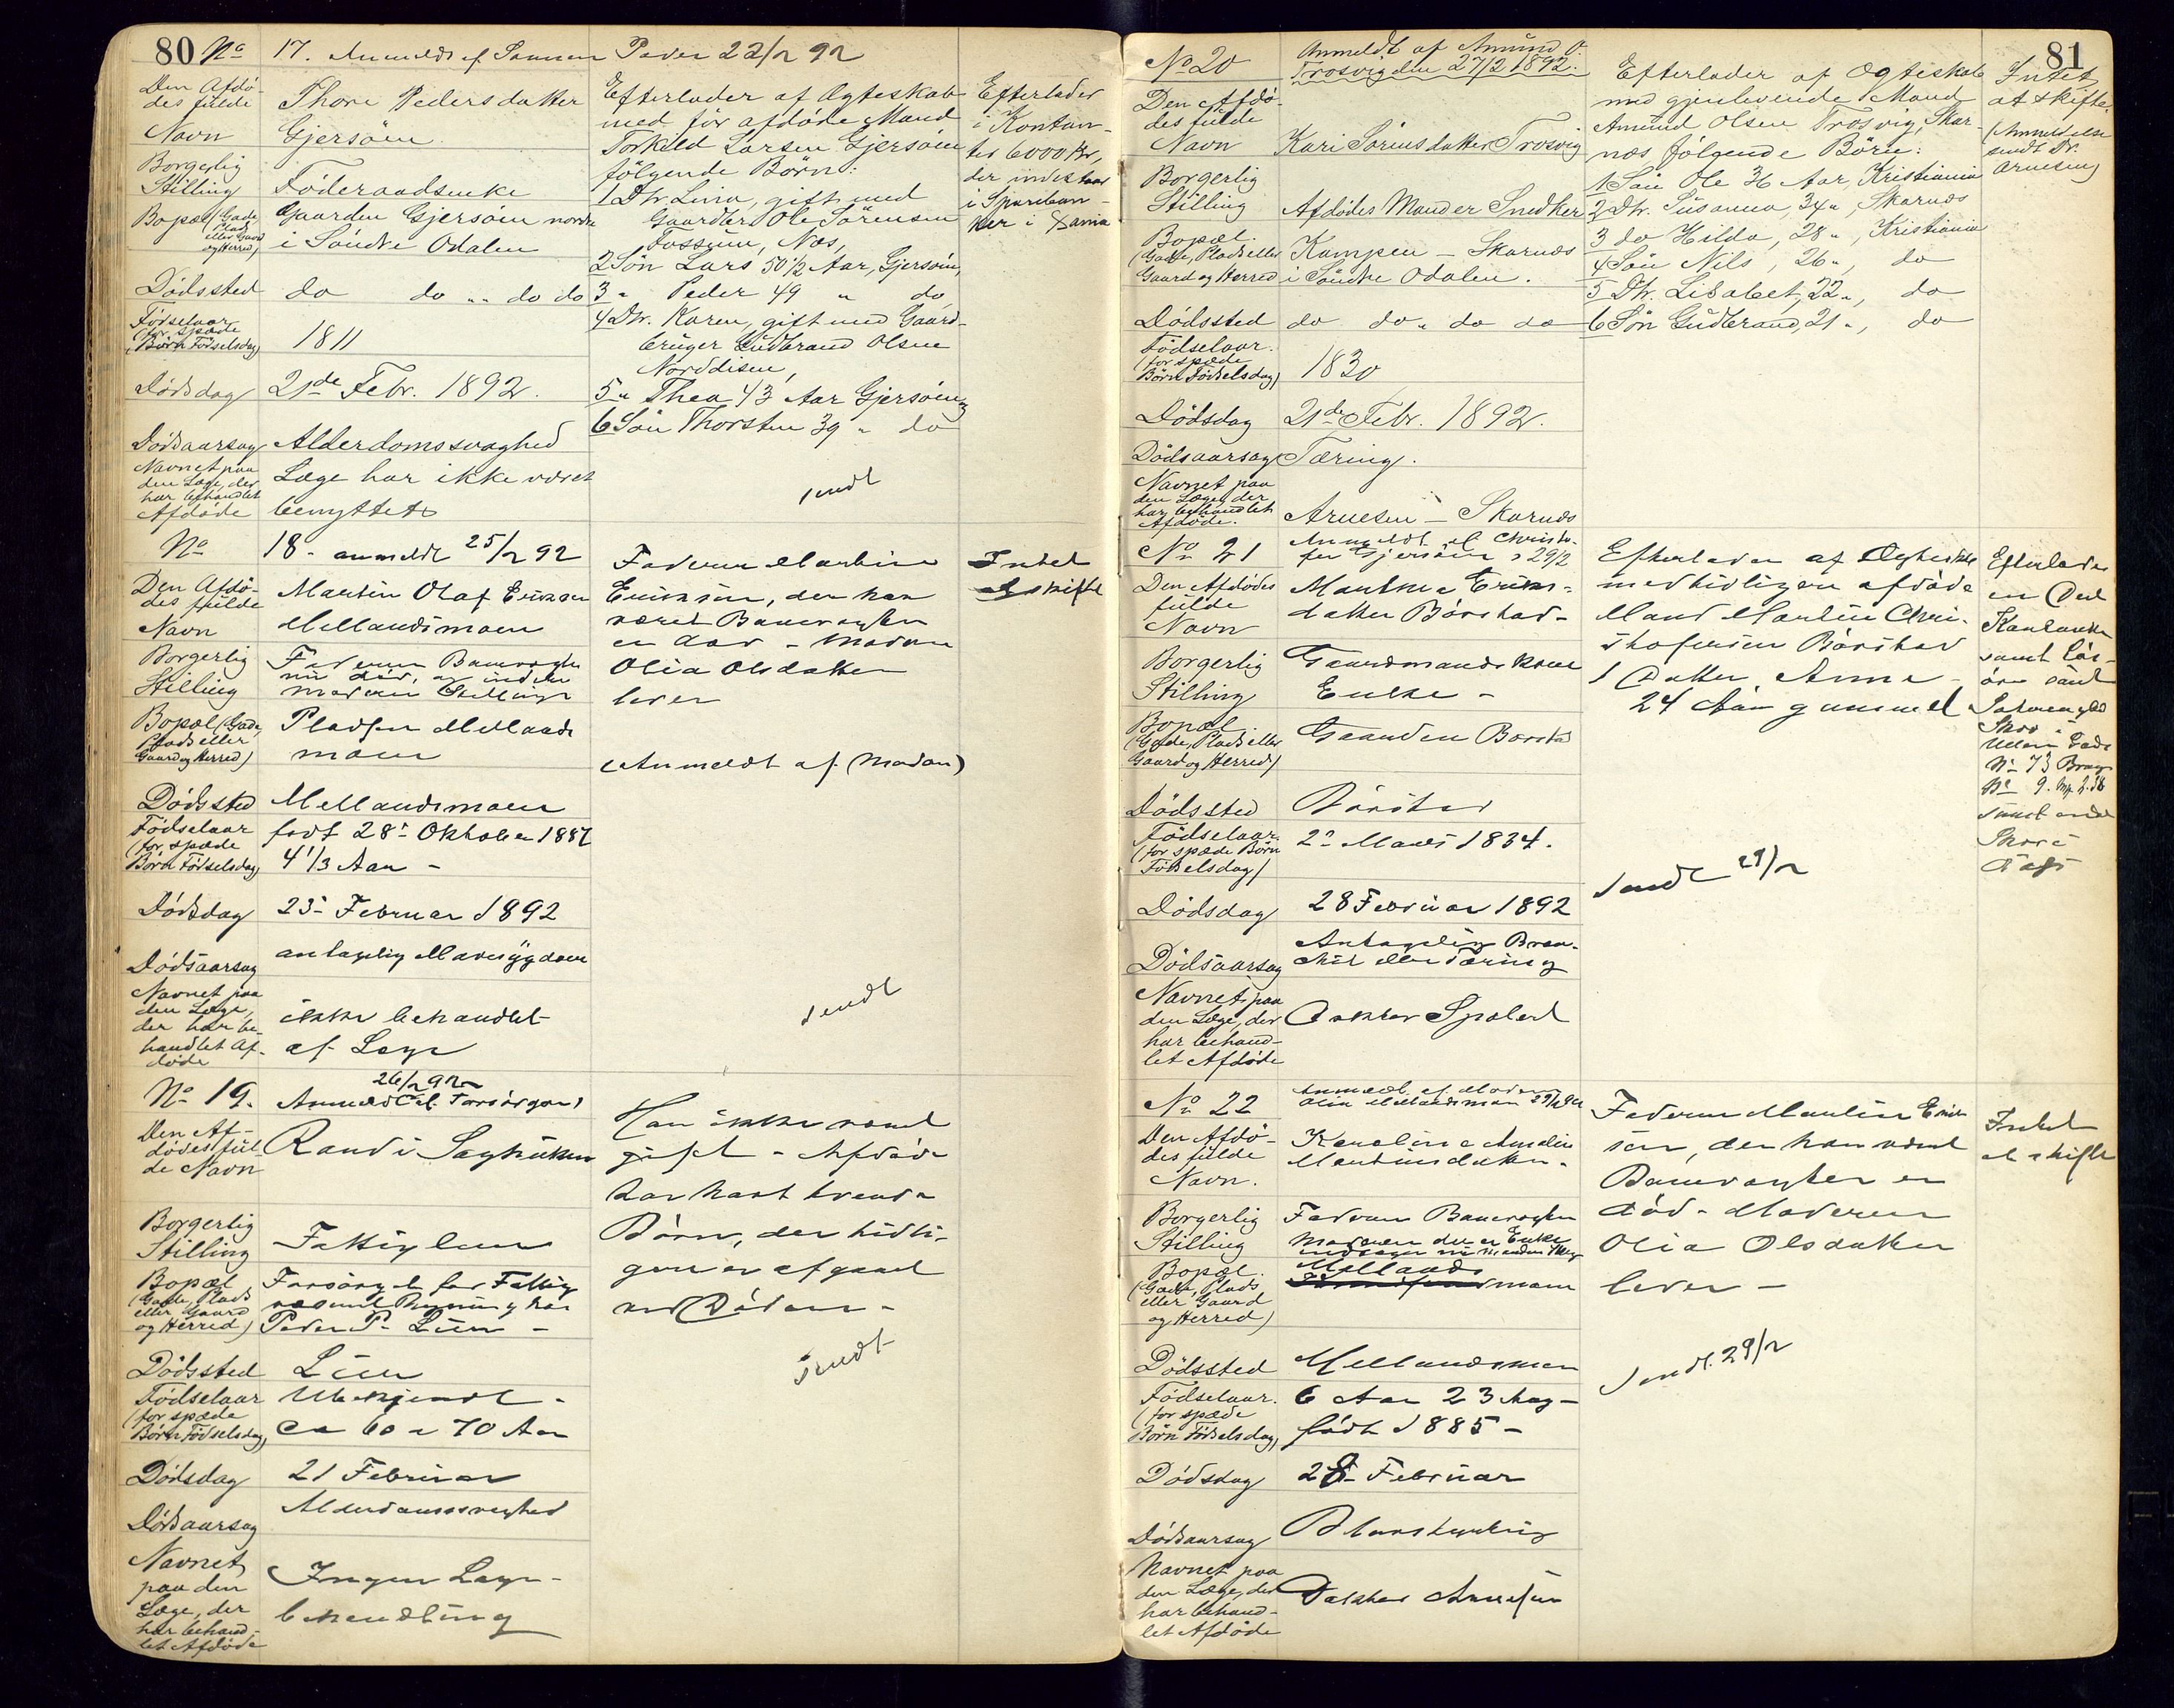 80 No 17. Anmeldt af Sønnen Peder 22/2 92
Den Afdø-
des fulde
Navn
Thore Pedersdatter
Gjersøien
Borgerlig
Stilling
Føderaadsenke
Bopæl (Gade,
Plads
eller Gaard
og Herred)
Gaarden Gjersøien nordre
i Søndre Odalen
Dødssted do do " " do do
Fødselaar
(for spæde
Børn Fødselsdag)
1811
Dødsdag 21de Febr. 1892.
Dødsaarsag Alderdomssvaghed
Navnet paa
den Læge, der
har behandlet
Afdøde
Læge har ikke været
benyttet
Efterlader af Ægteskab
med før afdøde Mand
Torkild Larsen Gjersøien
følgende Børn:
1 Dtr. Lina, gift med
Gaardbr. Ole Sørensen
Fossum, Næs,
2 Søn Lars 50 1/2 Aar, Gjersøien,
3 " Peder 49 " do
4 Dtr. Karen, gift med Gaard-
bruger Gudbrand Olsen
Norddisen,
5 " Thea 43 Aar Gjersøien
6 Søn Thorsten 39 " do
sendt
Efterlader
i Kontan-
ter 6000 Kr,
der indestaar
i Spariban-
ker i
No 18 - anmeldt 25/2 92
Den Afdø-
des fulde
Navn
Martin Olaf Eriksen
Mellandsmoen
Borgerlig
Stilling
Faderen Banevogter
nu død, og
moderen
Bopæl (Gade,
Plads eller
Gaard og Herred)
Pladsen Mellands
moen
Dødssted Mellandsmoen
Fødselaar
(for spæde
Børn Fødselsdag)
født 28 Oktober 1887
4 1/3 Aar -
Dødsdag 25 Februar 1892
Dødsaarsag antagelig Mavesygdom
Navnet paa
den Læge,
der har be-
handlet Af-
døde
ikke behandlet
af Læge
Faderen Martin
Eriksen, der har
været Banevogter
er død - Moderen
Olia Olsdatter
lever
(Anmeldt af Moderen)
sendt
Intet
at skifte
No 19. Anmeldt af Forsørgeren
26/2 92
Den Af-
dødes ful-
de Navn
Randi Saghuken
Borgerlig
Stilling
Fattiglem
Bopæl
(Gade, Plads
eller Gaard
og Herred)
Forsørget for Fattig
væsenets Regning hos
Peder P. Lien -
Dødssted Lien
Fødselaar
(for spæde
Børn Fødselsdag)
Ubekjendt -
ca 60 a 70 Aar
Dødsdag 21 Februar
Dødsaarsag Alderdomssvaghed
Navnet
paa den
Læge, der
har behand-
let Afdøde
Ingen Læge-
behandling
Har ikke været
gift - Afdøde
har havt trende
Børn, der tidli-
gere er afgaaet
ved Døden -
sendt
81
No 20 Anmeldt af Amund O.
Trosvig den 27/2 1892.
Den Afdø-
des fulde
Navn
Kari Sørinsdatter Trosvig
Borgerlig
Stilling
Afdødes Mand er Snedker
Bopæl.
(Gade, Plads eller
Gaard og Herred
Kampen - Skarnæs
i Søndre Odalen.
Dødssted do do " do do
Fødselaar.
(for spæde
Børn Fødselsdag)
1830
Dødsdag 21de Febr. 1892.
Dødsaarsag Tæring.
Navnet paa
den Læge, der
har behandlet
Afdøde.
Arnesen - Skarnæs
Efterlader af Ægteskab
med gjenlevende Mand
Amund Olsen Trosvig, Skar-
næs følgende Børn:
1 Søn Ole 36 Aar, Kristiania
2 Dtr. Susanna, 34 ", Skarnæs
3 do Hilda, 28 ", Kristiania
4 Søn Nils, 26 ", do
5 Dtr. Lisabet, 22 ", do
6 Søn Gudbrand, 21 ", do
Intet
at skifte.
(Anmeldelse
sendt Dr.
Arnesen)
No 21 Anmeldt af Christo-
fer Gjersøien 29/2
Den Afdødes
fulde
Navn
Marthea Eriks-
datter Børstad -
Borgerlig
Stilling
Gaardmandskone
Enke -
Bopæl
(Gade, Plads eller
Gaard og Herred)
Gaarden Børstad
Dødssted Børstad
Fødselaar.
(for spæde Børn
Fødselsdag)
2 Marts 1834.
Dødsdag 28 Februar 1892
Dødsaarsag
Antagelig Bron-
chit eller Tæring
Navnet paa
den Læge, der
har behand-
let Afdøde
Doktor
Efterlader af Ægteskab
med tidligere afdøde
Mand Martin Chri-
stofersen Børstad
1 Datter Anna -
24 Aar gammel
sendt 29/2
Efterlader
en Del
Kontanter
samt Løs-
øre samt
Skov i
No 73 Brug
No 9.
samt
Skov i
No 22 Anmeldt af Moderen
Olia Mellandsmoen 29/2 92
Den Afdø-
des fulde
Navn.
Karoline Amalie
Martinsdatter -
Borgerlig
Stilling
Faderen Banevogter
Moderen der er Enke
Bopæl.
(Gade, Plads
eller Gaard
og Herred)
Mellands
moen
Dødssted Mellandsmoen
Fødselaar.
(for spæde
Børn Fødselsdag)
6 Aar 23 Aug -
født 1885 -
Dødsdag 28 - Februar
Dødsaarsag
Navnet paa
den Læge, der
har behand-
let Afdøde
Doktor Arnesen
Faderen Martin Erik-
sen, der har været
Banevogter er
død - Moderen
Olia Olsdatter
lever -
sendt 29/2
Intet
at skifte